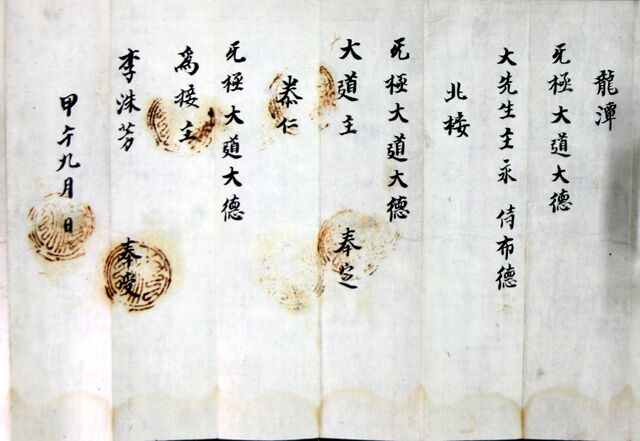 龍潭
无極大道大德
大先生主永 侍布德
北接
无極大道大德
大道主 奉定
泰仁
无極大道大德
為接主
李洙芳 奉受
甲午九月 日